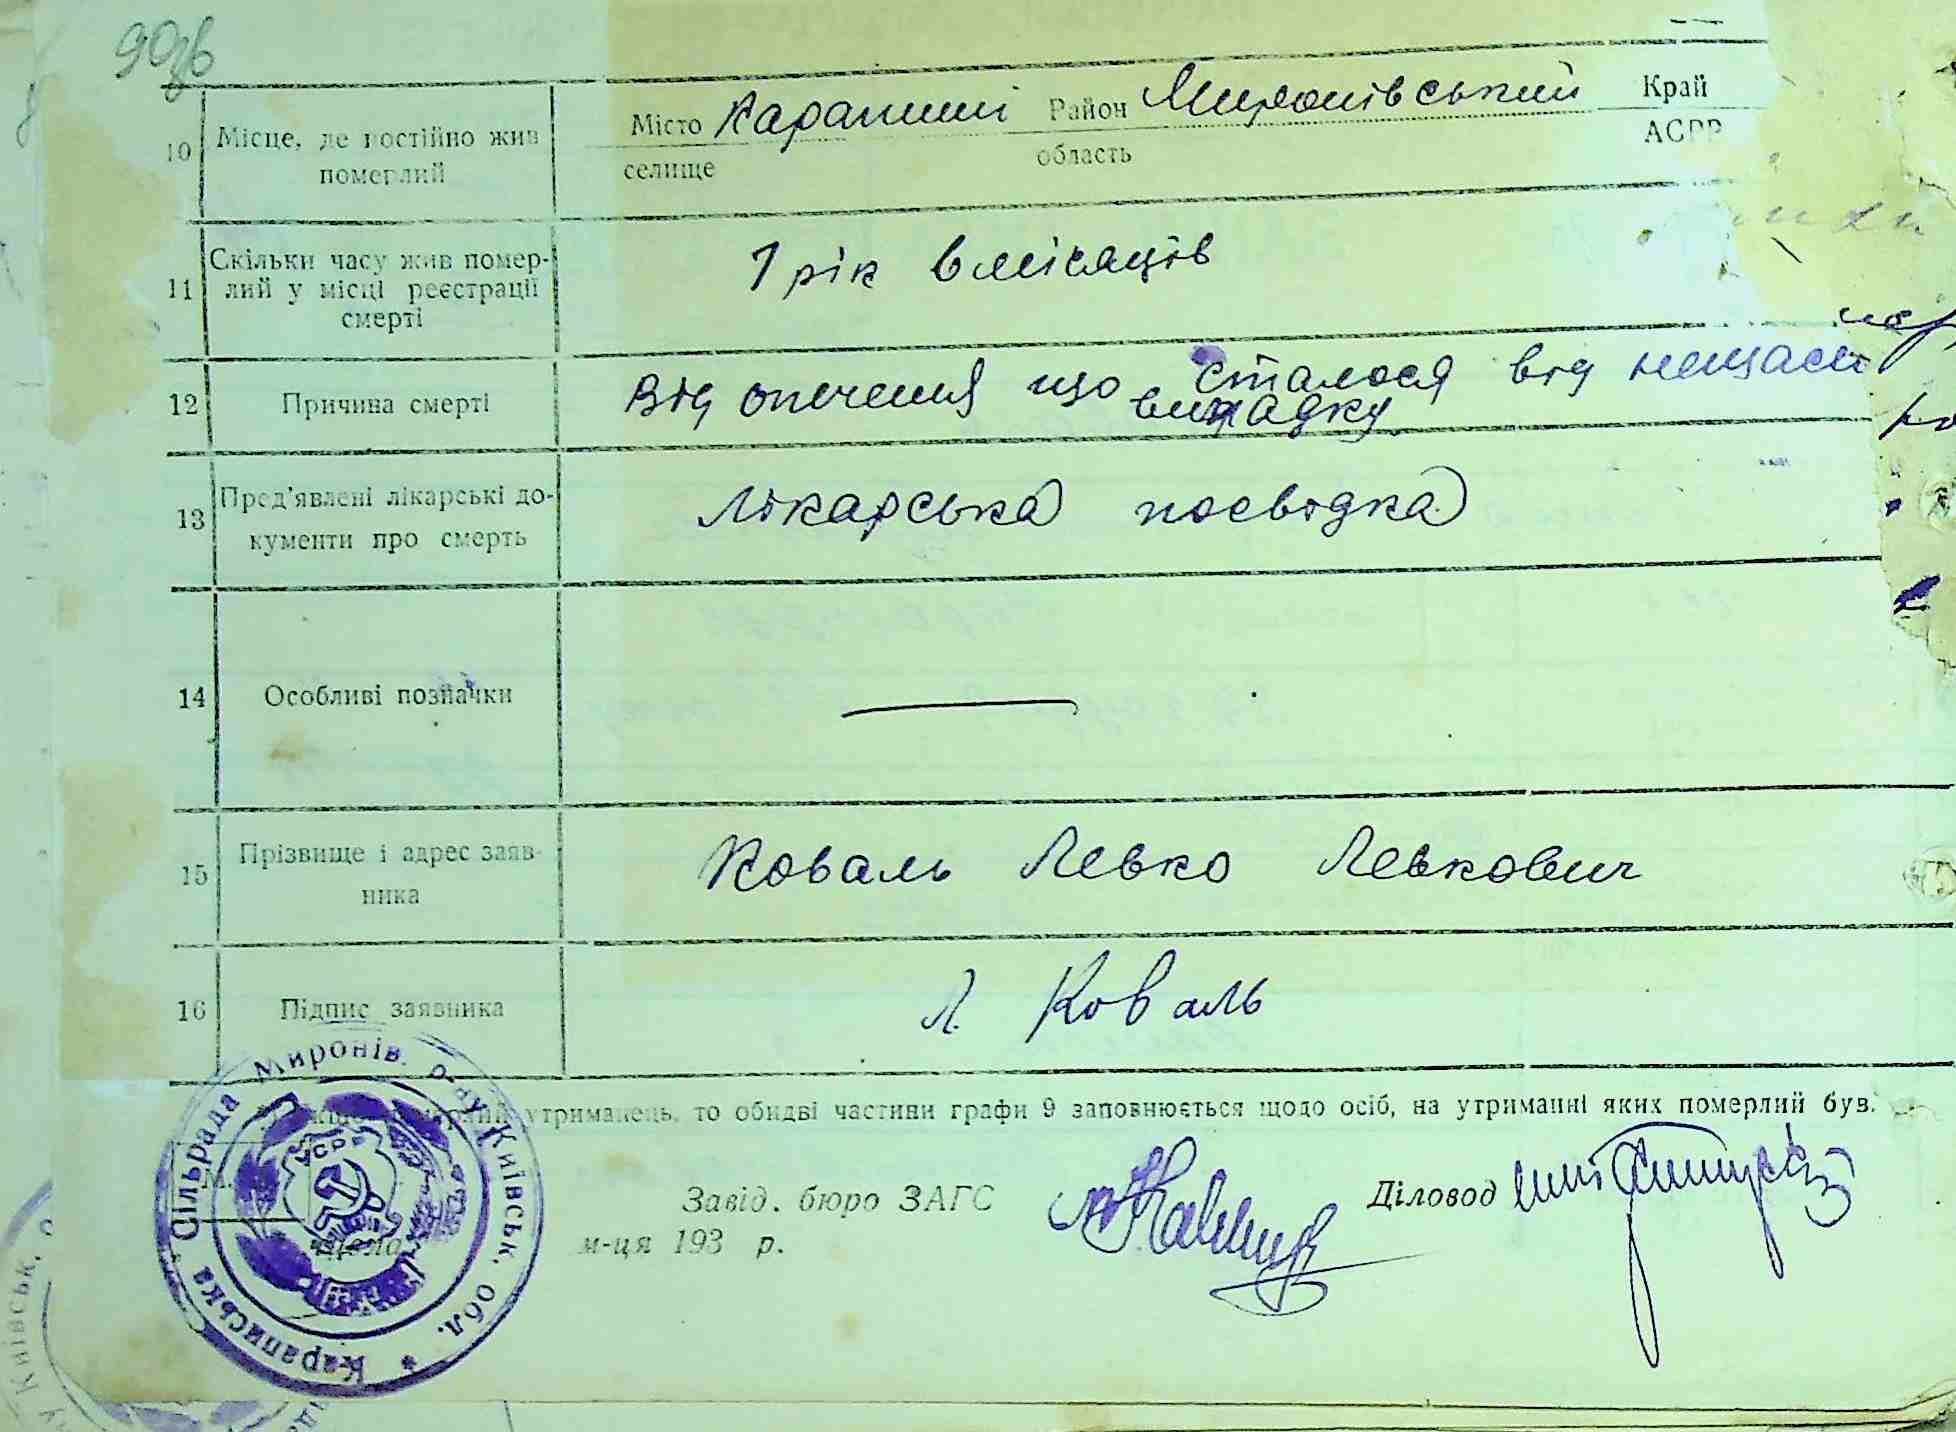 90зв
10 Місце, де постійно жив померлий
Місто Карапиші Район Миронівський Край
селище область АСРР
11 Скільки часу жив помер-
лий у місці реєстрації
смерті
1 рік 6 місяців
12 Причина смерті
Від опечення що сталося від нещасн
випадку
13 Пред'явлені лікарські до-
кументи про смерть
Лікарська посвідка
14 Особливі позначки
—
15 Прізвище і адрес заяв-
ника
Коваль Левко Левкович
16 Підпис заявника
Л. Коваль
утриманець, то обидві частини графи 9 заповнюється щодо осіб, на утриманні яких померлий був.
М.
Завід. бюро ЗАГС
Діловод
м-ця 193 р.
* Караписька Сільрада Миронів. р-ну Київськ. обл.
УСРР
Київськ.